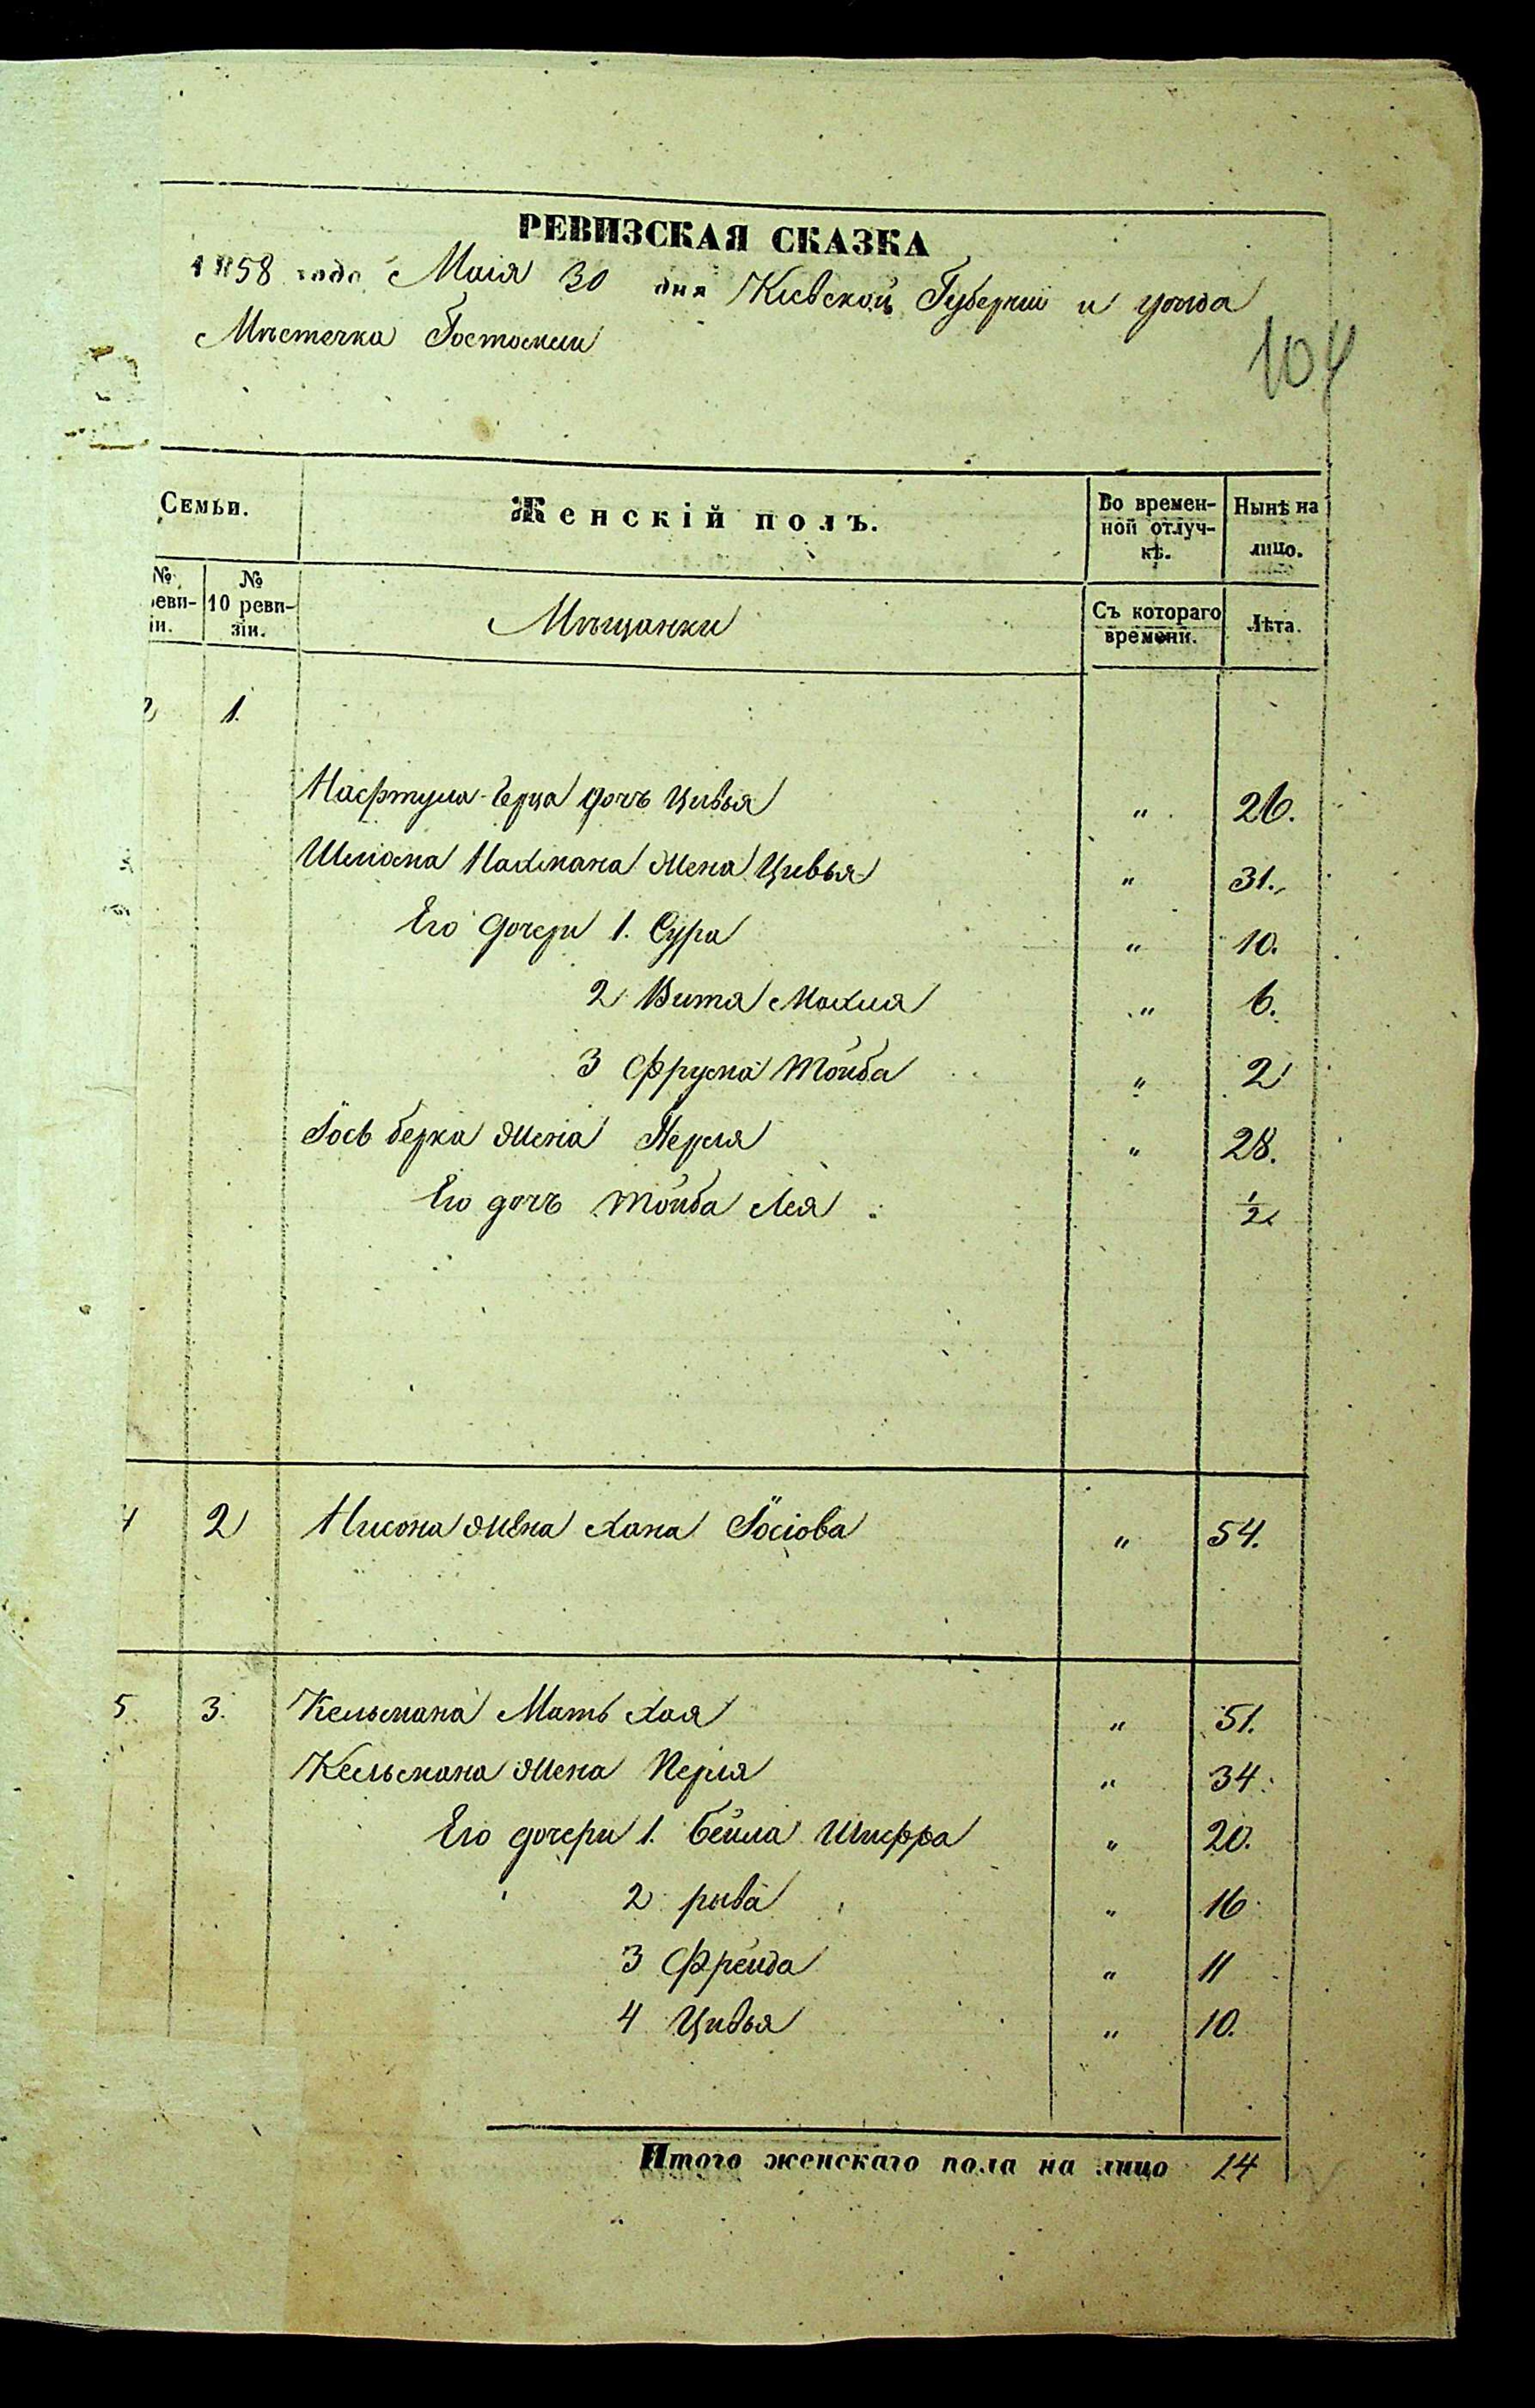 РЕВИЗСКАЯ СКАЗКА
1858 года Маія 30 дня Кіевской Губерніи и уѣзда
Мѣстечка Гостомли
104
Семьи. Женскій полъ. Во временной отлучкѣ. Нынѣ на лицо.
№ реви-
зіи.
№ 10 реви-
зіи.
Мѣщанки
Съ котораго времени. Лѣта.
2 1.
Нафтула-Герца дочь Цивья " 26.
Шліома Нахмана жена Цивья " 31.
Его дочери 1. Сура " 10.
2 Вита Махля " 6.
3 Фрума Тойба " 2
Іось Берка жена Перля " 28.
Его дочь Тойба Лея 1/2
4 2 Нисона жена Хана Іосіова " 54.
5 3. Кельмана Мать Хая " 51.
Кельмана жена Перля " 34.
Его дочери 1. Бейла Шифра " 20.
2 рыва " 16
3 Фрейда " 11
4 Цивья " 10.
Итого женскаго пола на лицо 14